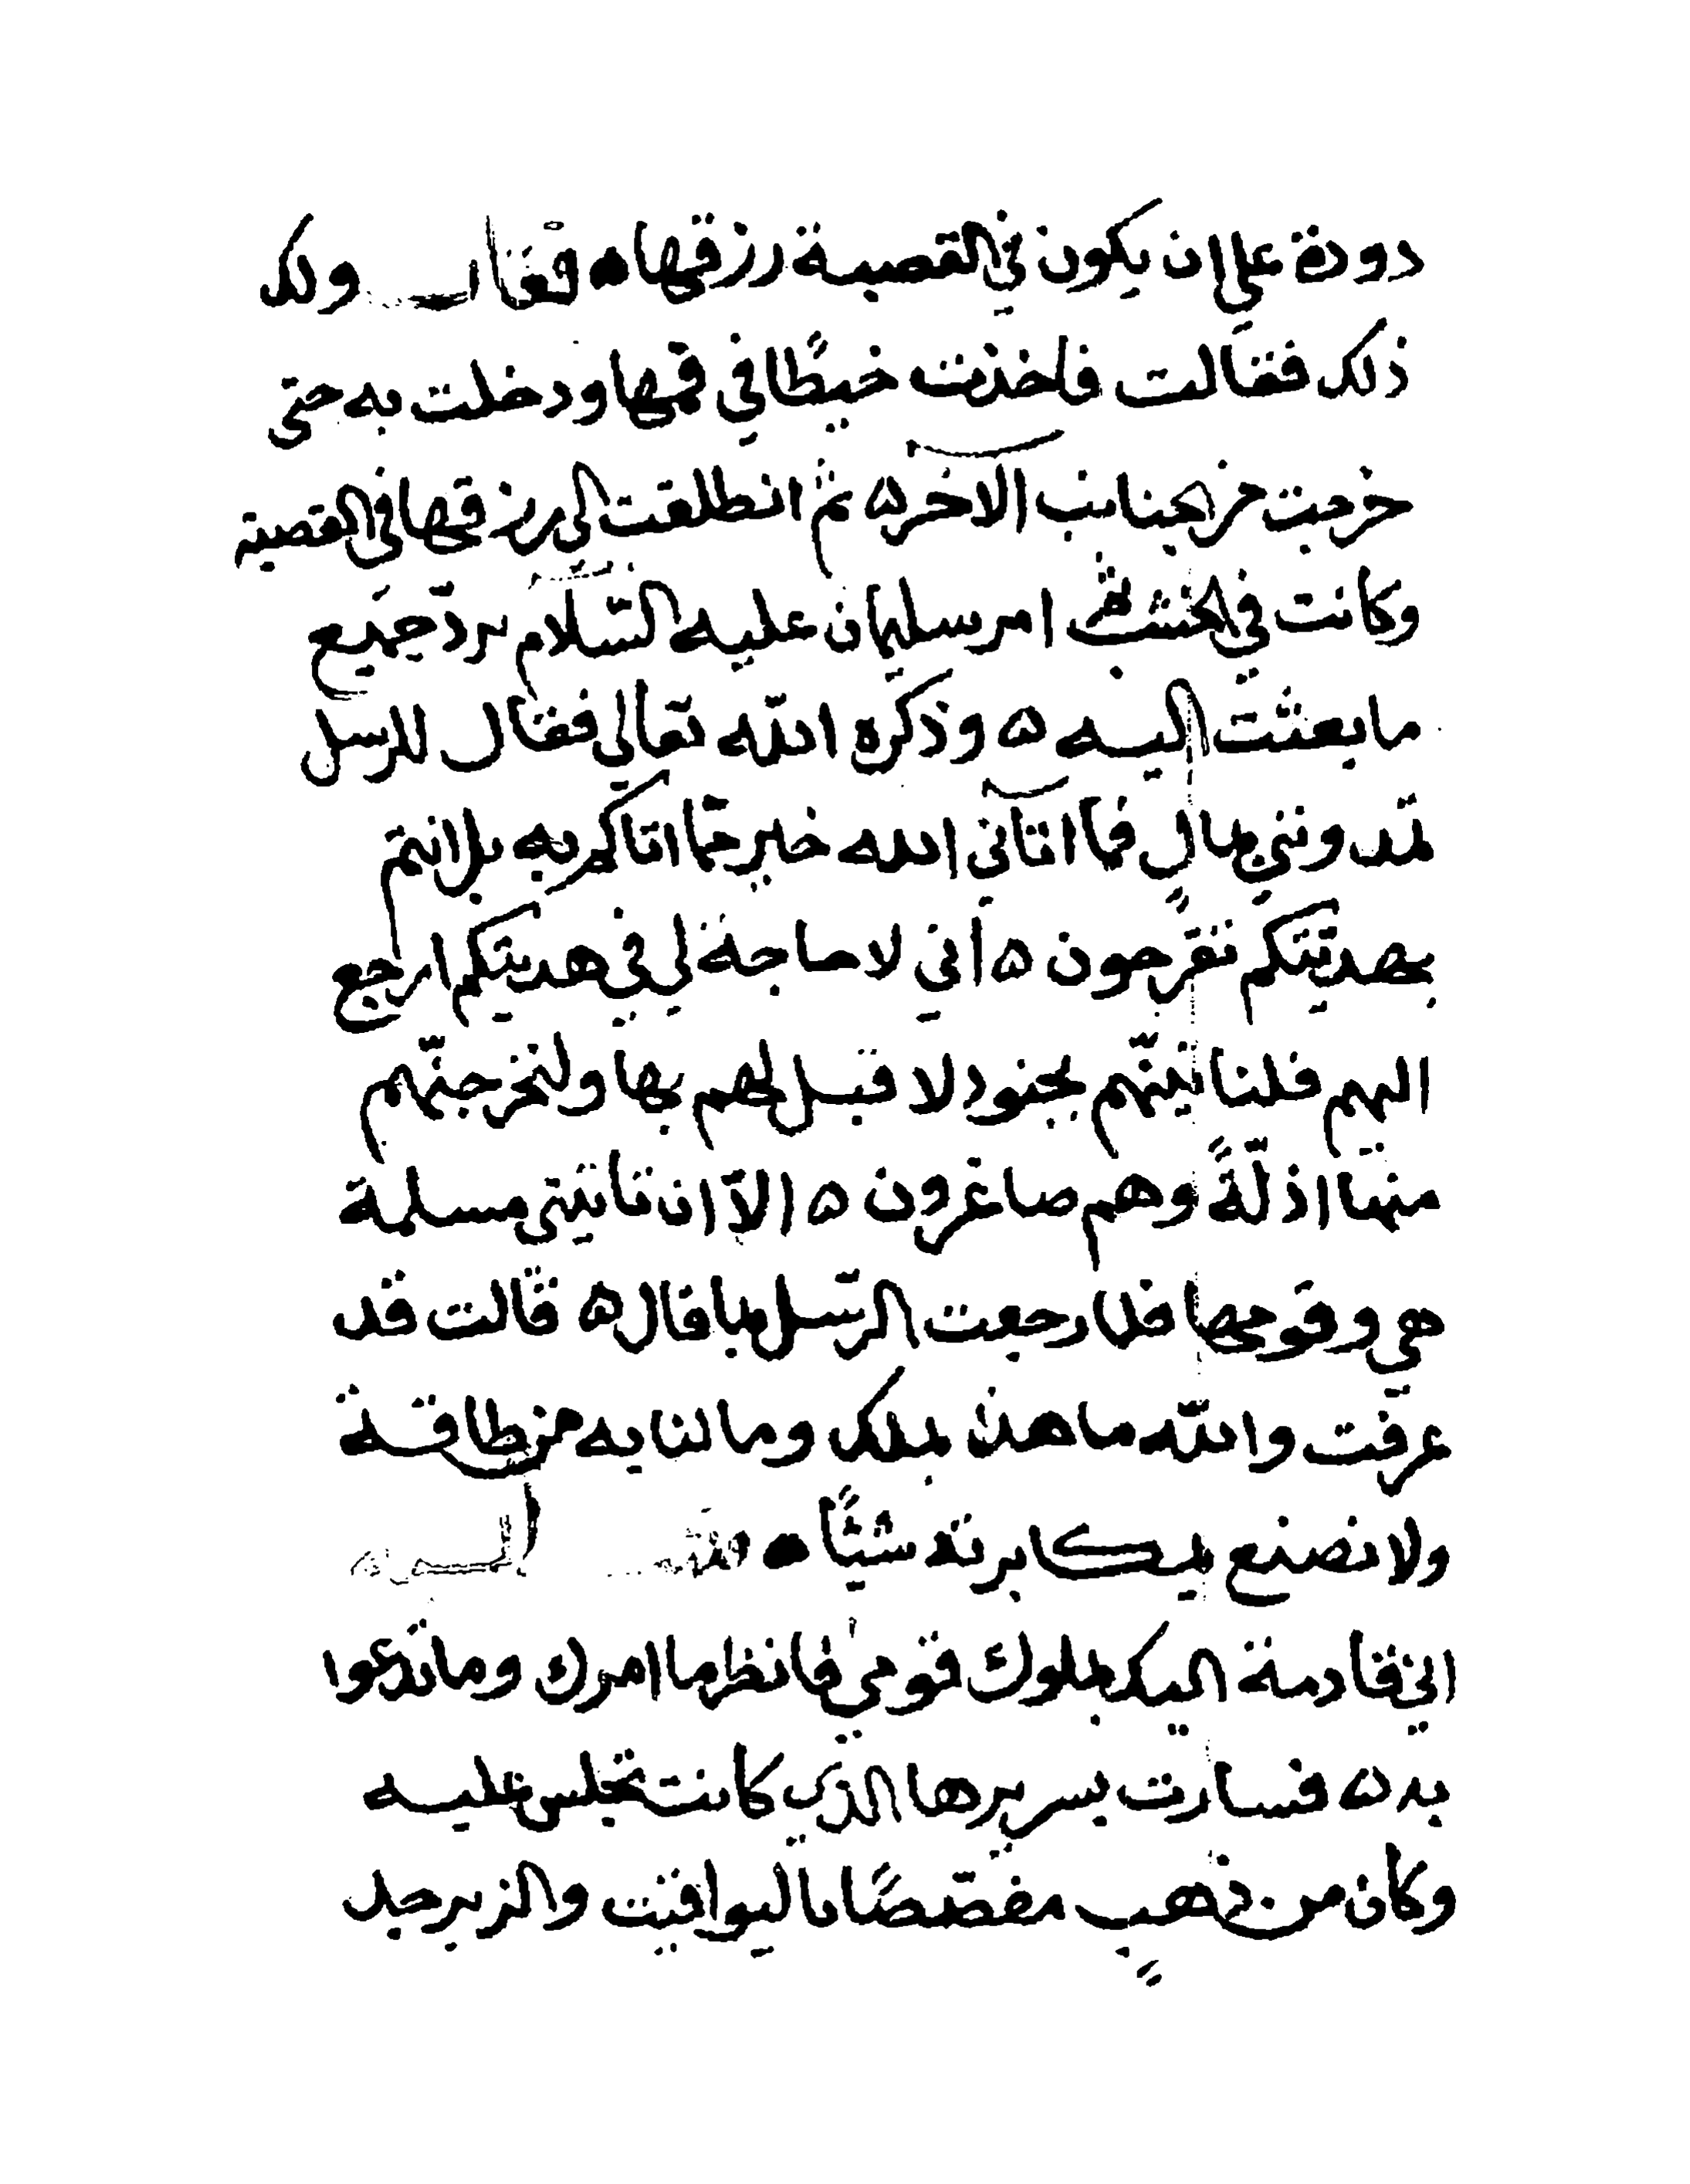 دودة على ان يكون في القصبة رزقها ه فقال ولك
ذلك فقالت فاخذت خيطًا في فمها ودخلت به حتى
خرجت من الجنانب الآخر ه ثم انطلقت الى رزقها في القصبة
وكانت في الخشب ثم امر سليمان عليه السّلام بردّ جميع
ما بعثت اليه ه وذكره الله تعالى فقال للرسل
تمدونني بمالٍ فما آتاني الله خير ممّا اتاكم به بل انتم
بهديّتكم تفرحون ه أني لا حاجة لي في هديتكم ارجع
اليهم فلناتينّهم بجنود لا قبل لهم بها ولنخرجنّهم
منها اذلّةً وهم صاغرون ه الّا ان تاتيني مسلمة
هي وقومها فلما رجعت الرّسل بما قال ه قالت قد
عرفت والله ما هذا بملك وما لنا به من طاقة
ولا نصنع بمكابرته شيئًا ه اليه
اني قادمة اليك بملوك قومي فانظر ما امرك وما تدعوا
به ه فسارت بسريرها الذي كانت تجلس عليه
وكان من ذهبٍ مفصّصًا باليواقيت والزبرجد